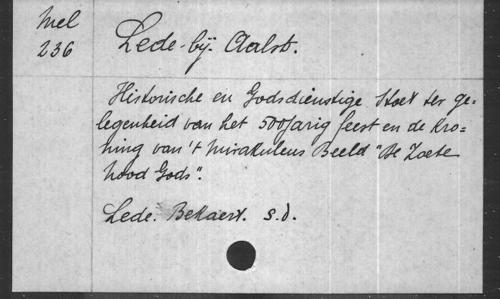 Mel
236
Lede-bij-Aalst.
Historische en Godsdienstige Stoet ter ge-
legenheid van het 500jarig feest en de Kro-
ning van 't Mirakuleus Beeld "De Zoete
nood Gods".
Lede. Bekaert. s.d.